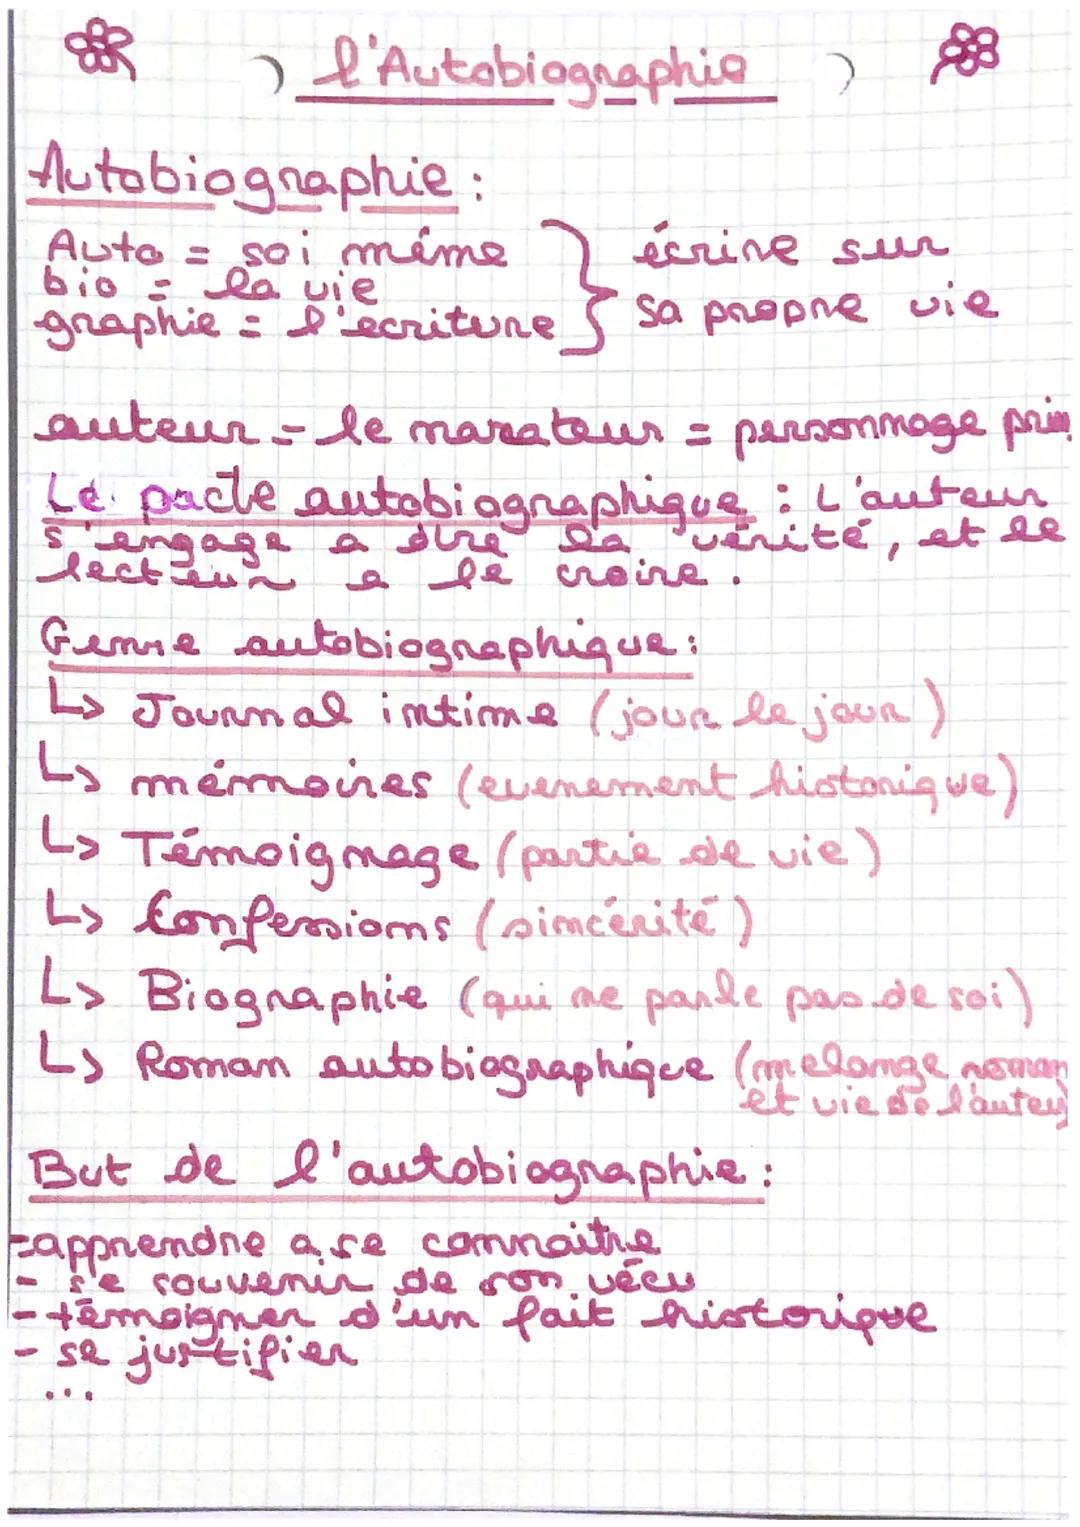 l'Autobiographie
Autobiographie :
Auto = soi même
bio = la vie
graphie = l'ecriture
écrire sur
sa propre vie
auteur = le narrateur = personnage prin
Le pacte autobiographique : L'auteur
s'engage a dire la vérité, et le
lecteur a le croire.
Genre autobiographique :
↳ Journal intime (jour le jour)
↳ mémoires (evenement historique)
↳ Témoignage (partie de vie)
↳ Confessions (sincérité)
↳ Biographie (qui ne parle pas de soi)
↳ Roman autobiographique (melange roman
et vie de l'auteur)
But de l'autobiographie :
- apprendre a se connaitre
- se souvenir de son vécu
- témoigner d'un fait historique
- se justifier
...